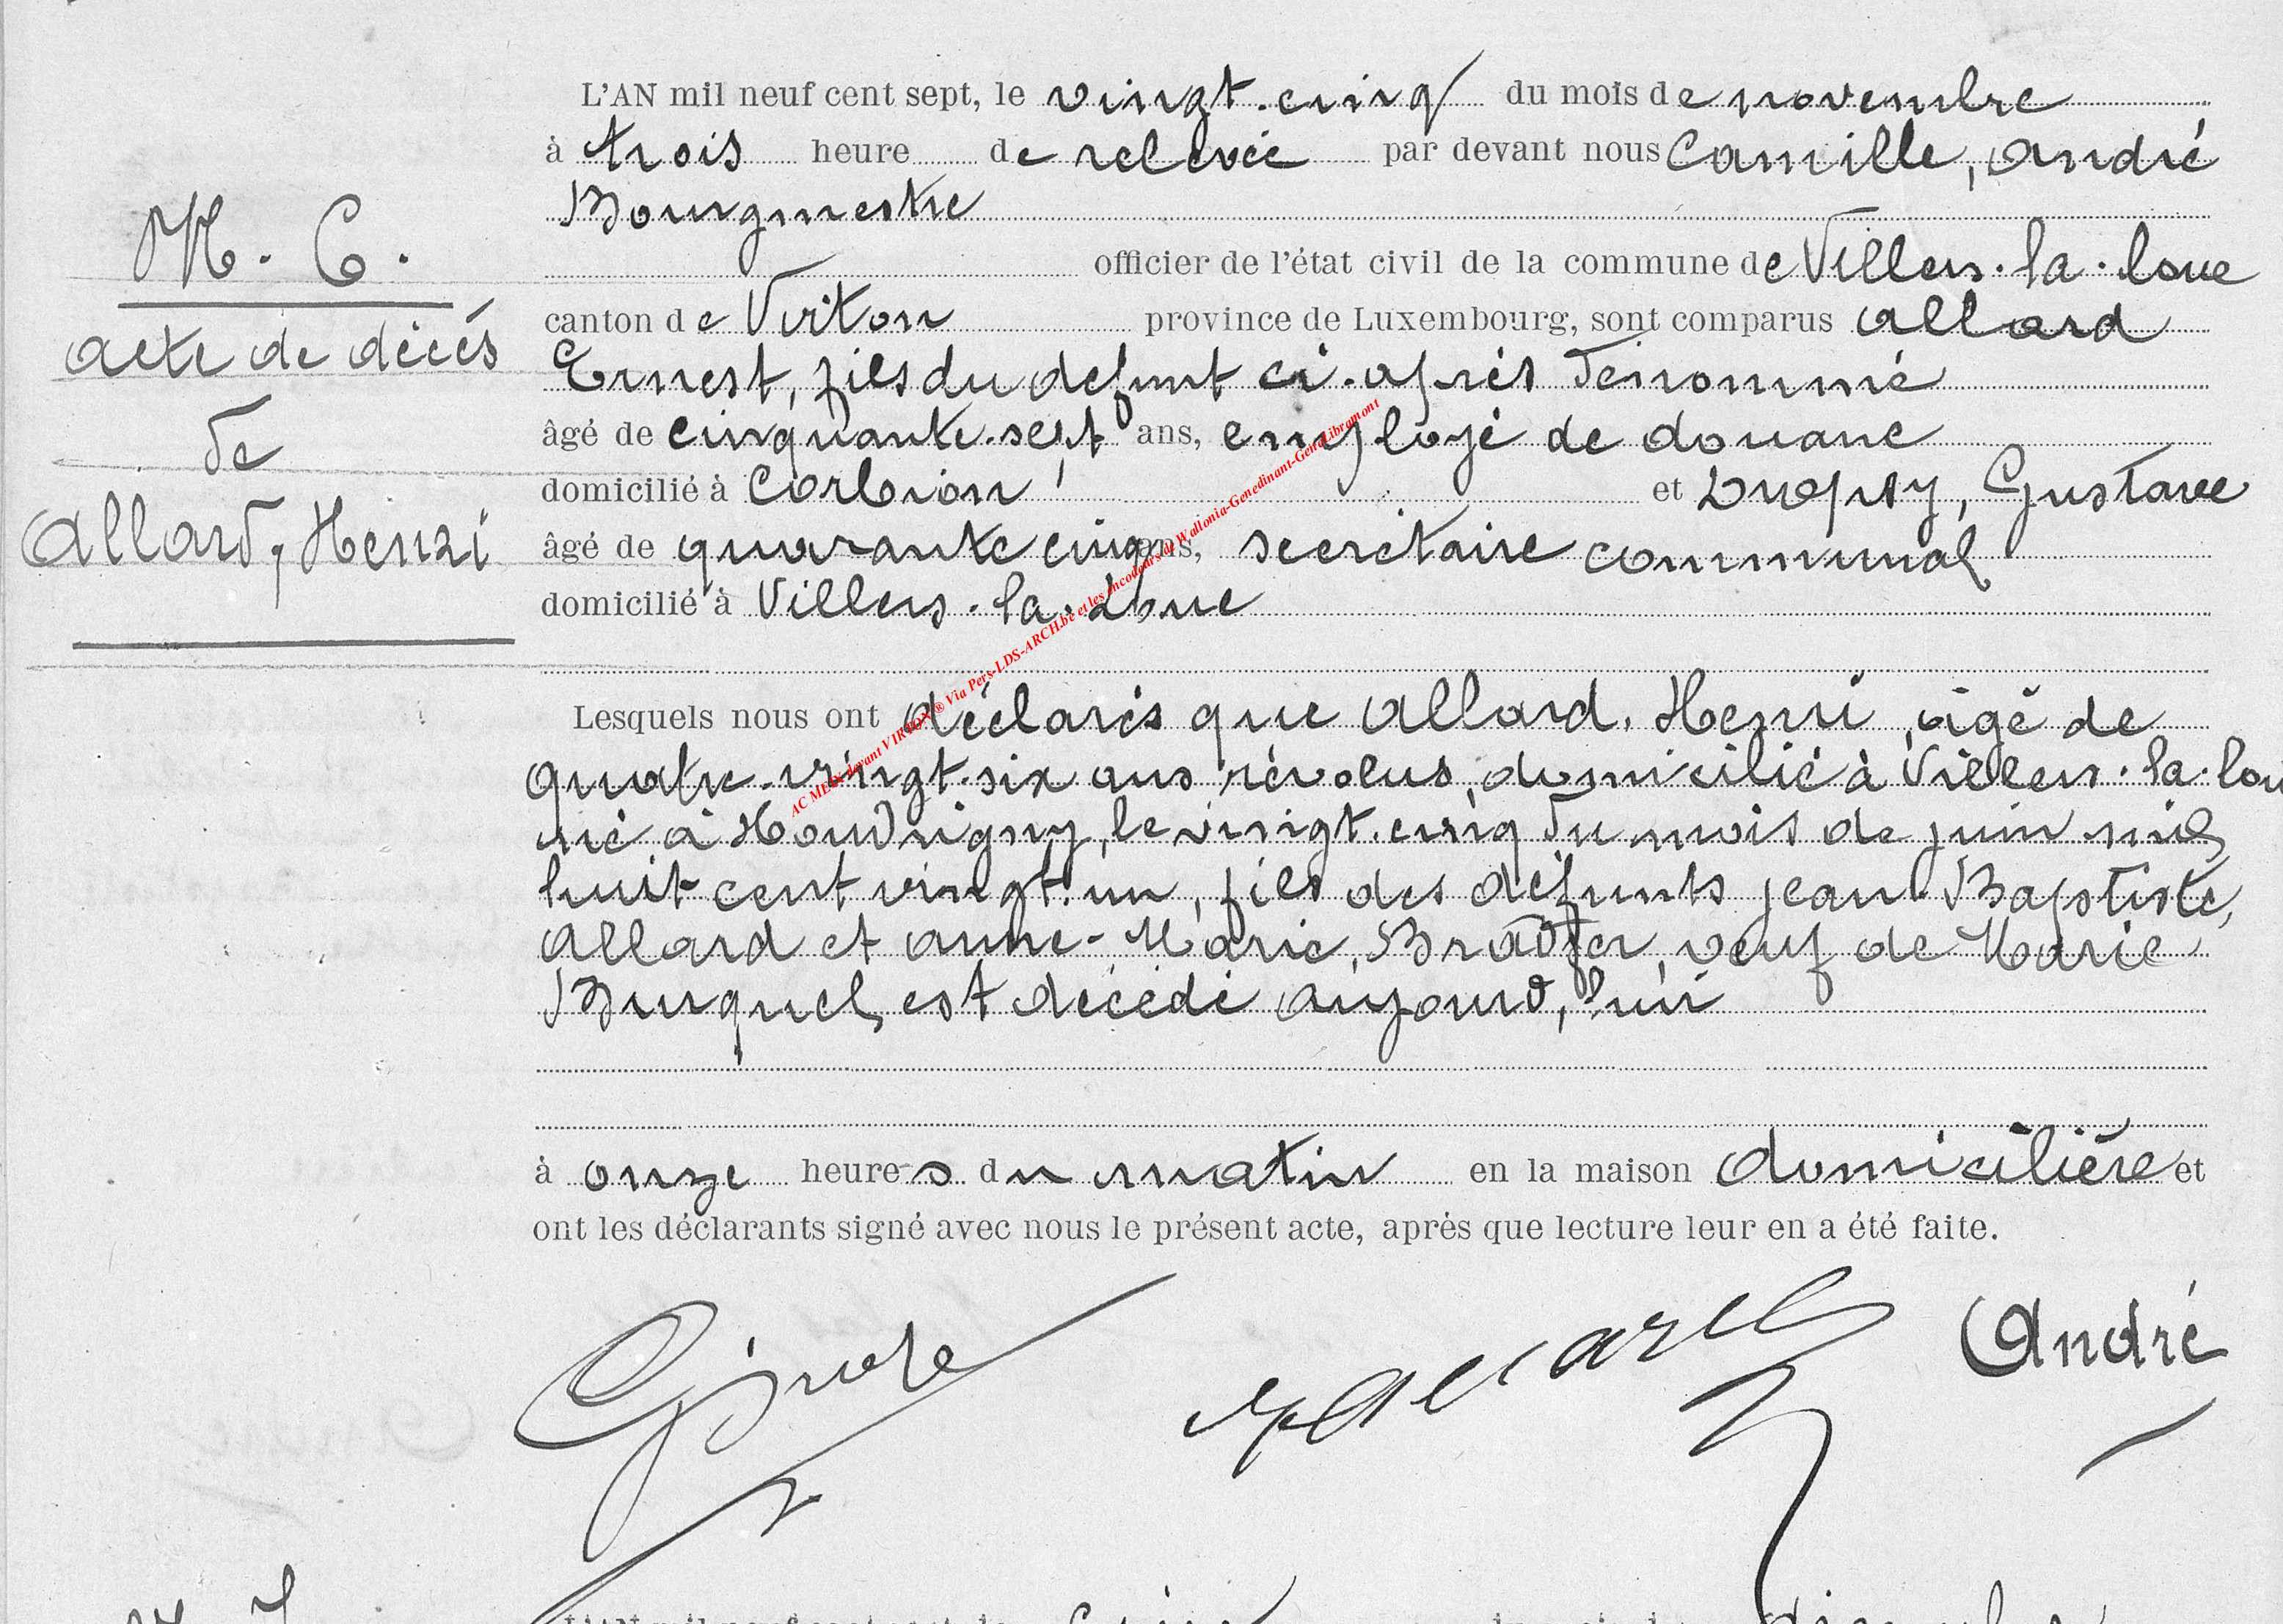 L'AN mil neuf cent sept, le vingt-cinq du mois de novembre
à trois heure de relevée par devant nous Camille, André
Bourgmestre
officier de l'état civil de la commune de Villers-la-loue
canton de Virton province de Luxembourg, sont comparus Allard
Ernest, fils du defunt ci-après denommé
âgé de cinquante-sept ans, employé de douane
domicilié à Corbion et Dropsy, Gustave
âgé de quarante cinq ans, secrétaire communal
domicilié à Villers-la-Loue
N. 6.
acte de décès
de
Allard, Henri
Lesquels nous ont déclarés que Allard, Henri, âgé de
quatre-vingt-six ans révolus, domicilié à Villers-la-lou
né à Houdrigny, le vingt-cinq du mois de juin mil
huit cent vingt-un, fils des défunts jean-Baptiste,
Allard et anne-Marie, Bradfer, veuf de Marie
Burquel, est décédé aujourd'hui
à onze heures du matin en la maison domicilière et
ont les déclarants signé avec nous le présent acte, après que lecture leur en a été faite.
André
AC MEIX devant VIRTON ® Via Pers-LDS-ARCH.be et les encodeurs de Wallonia-Genedinant-GeneLibramont